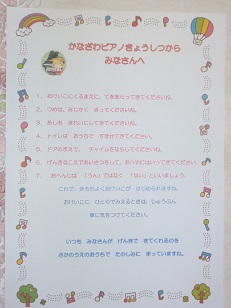 かなざわピアノきょうしつから
みなさんへ
1. おけいこにくるまえに、てをあらってきてくださいね。
2. つめは、みじかく きってくださいね。
3. あしも きれいにしてきてくださいね。
4. トイレは おうちで すませてきてくださいね。
5. ドアのまえで、 チャイムをならしてくださいね。
6. げんきなこえであいさつをして、おへやにはいってきてくださいね。
7. おへんじは 「うん」ではなく 「はい」といいましょう。
これで、きもちよくおけいこが はじめられますね。
おけいこに ひとりでみえるときは、じゅうぶん
車に気をつけてください。
いつも みなさんが げんきで きてくれるのを
さかのうえのおうちで たのしみに まっていますね。